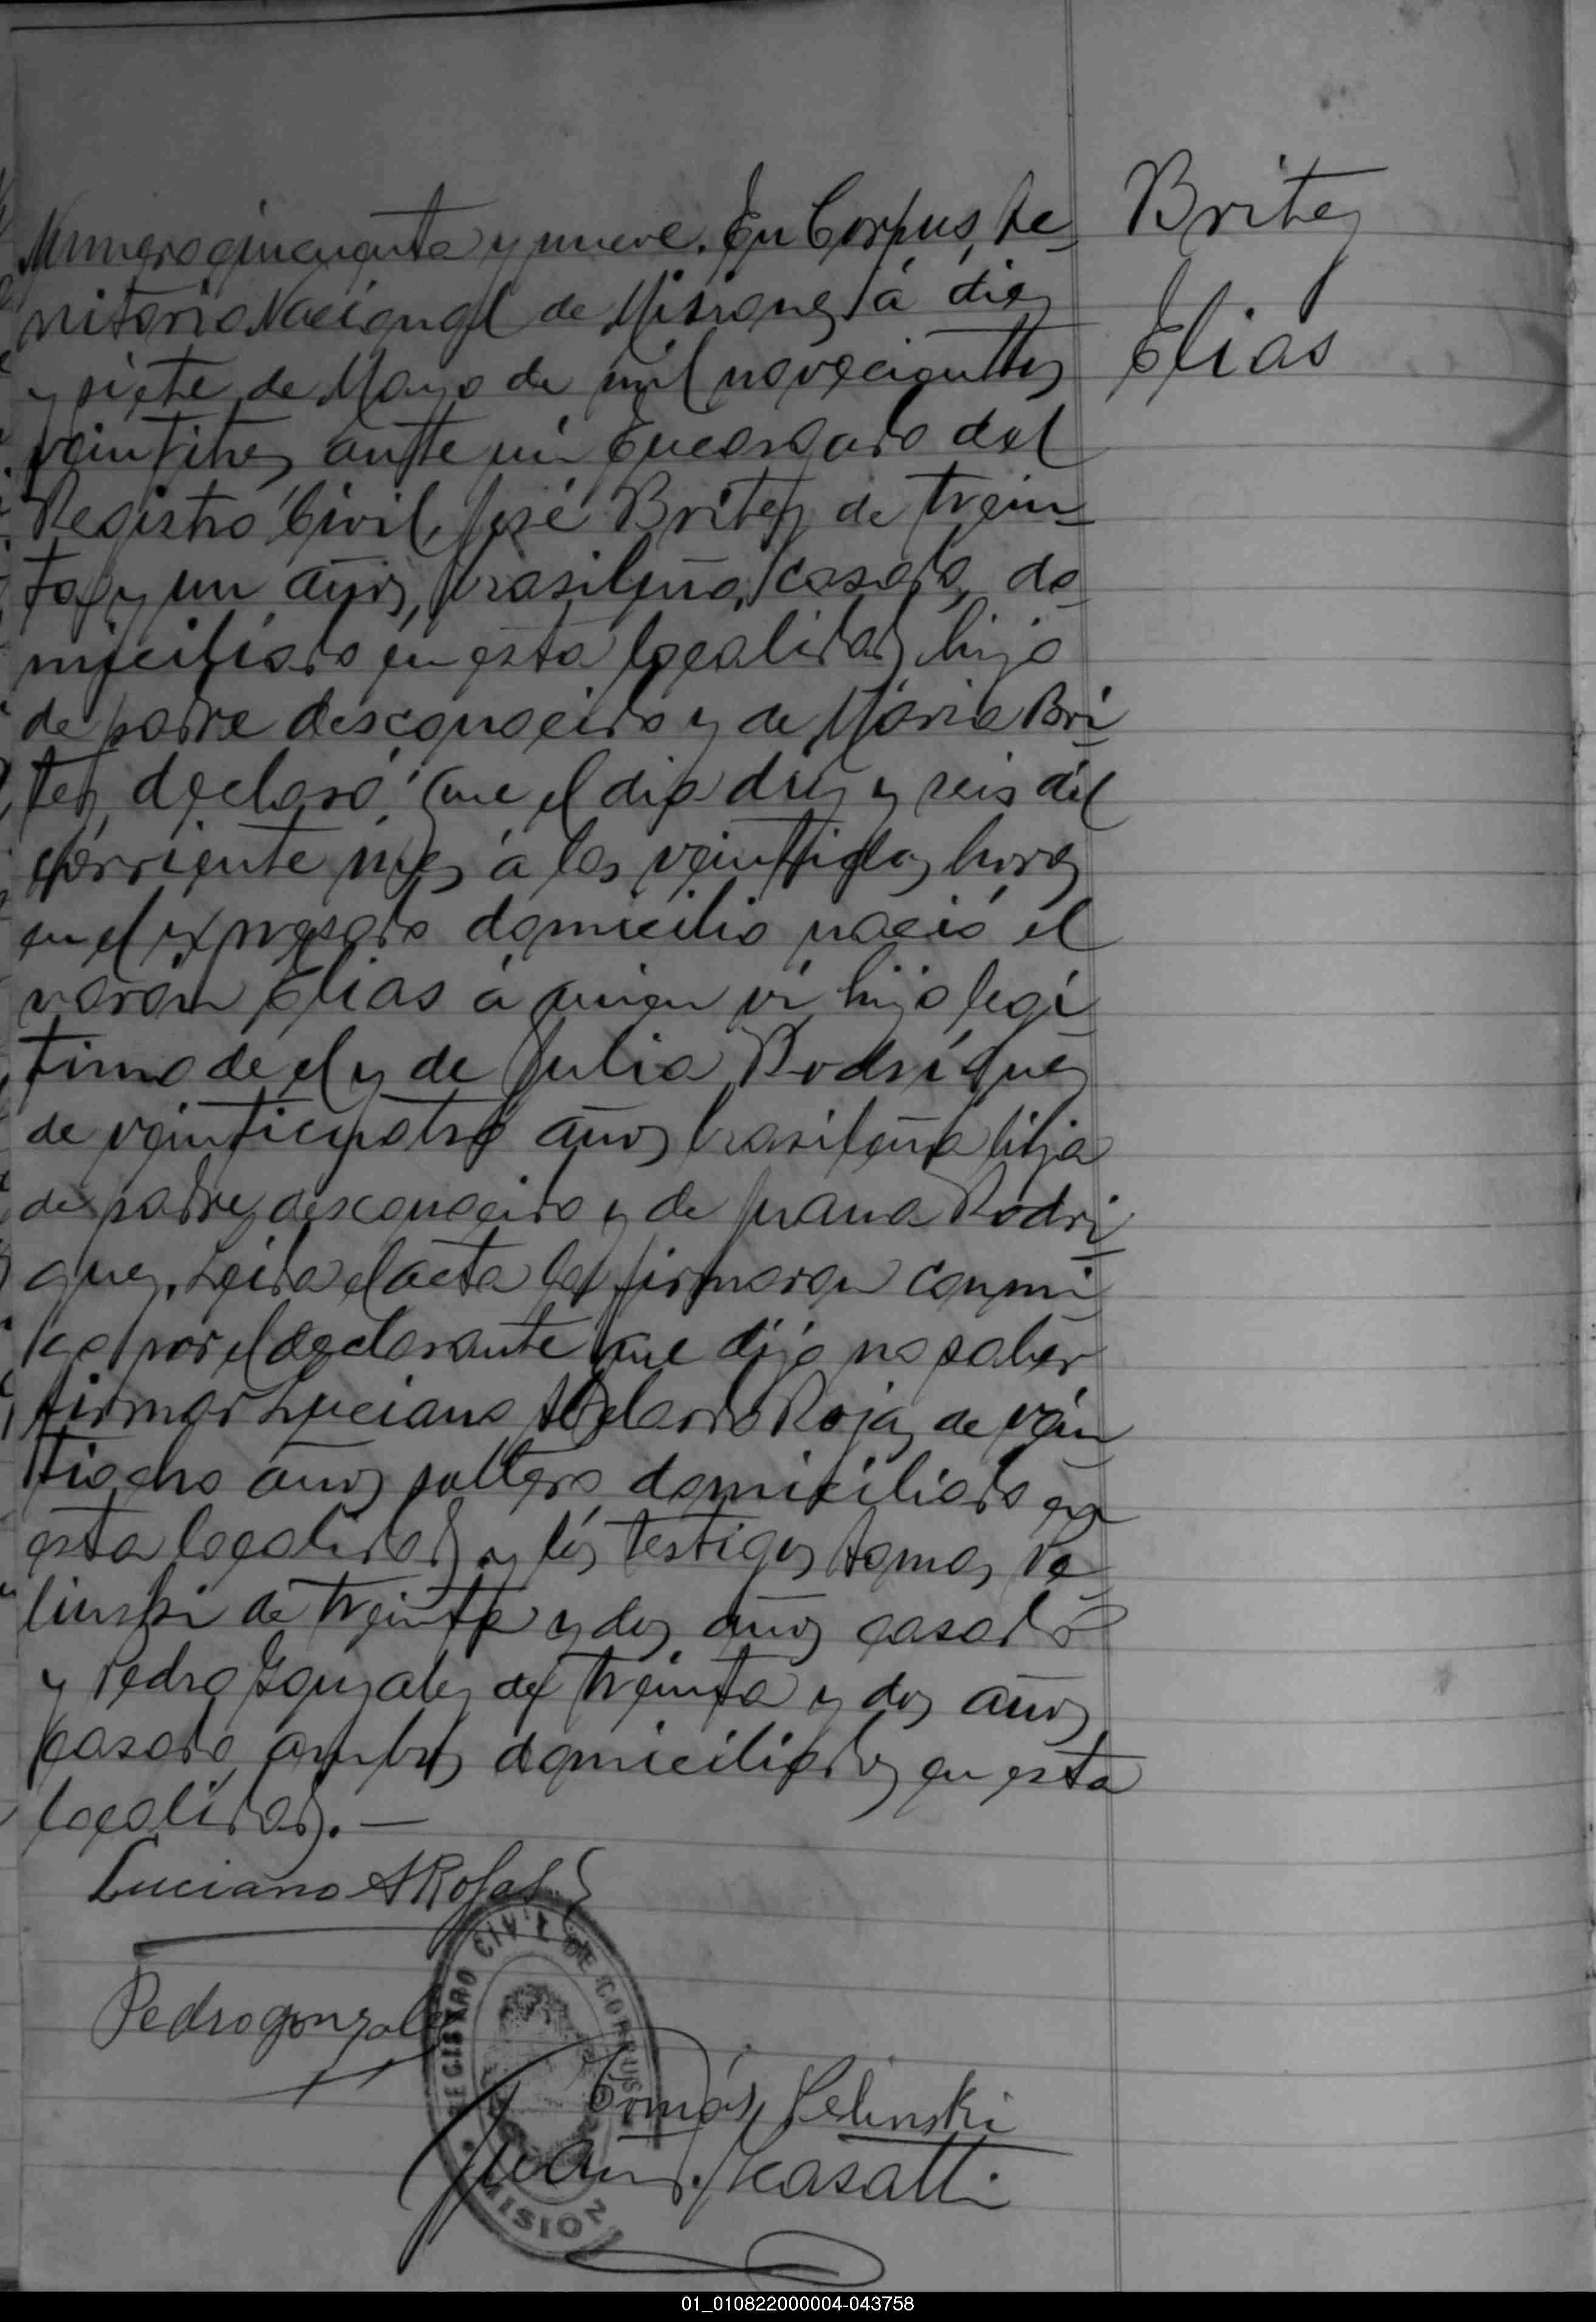 Britez
Elias
Numero cincuenta y nueve. En Corpus, Te-
rritorio Nacional de Misiones, á diez
y siete de Mayo de mil novecientos
veintitres, ante mí Encargado del
Registro Civil, José Britez de trein-
ta y un años, brasileño, casado, do-
miciliado en esta localidad, hijo
de padre desconocido y de Maria Bri-
tez, declaró: Que el dia diez y seis del
corriente mes á las veintidos horas
en el expresado domicilio nació el
varón Elias á quien ví hijo legi-
timo de el y de Julia Rodriguez
de veinticuatro años brasileña hija
de padre desconocido y de Juana Rodri-
guez. Leida el acta la firmaron conmi-
go por el declarante que dijo no saber
firmar Luciano Abelardo Rojas de vein-
tiocho años soltero domiciliado en
esta localidad y los testigos Tomas Pe-
linski de treinta y dos años casado
y Pedro Gonzalez de treinta y dos años
casado, ambos domiciliados en esta
localidad.—
Luciano A Rojas
Pedro gonzalez
REGISTRO CIVIL DE CORPUS
Tomás Pelinski
Juan Casatti
MISION
01_010822000004-043758